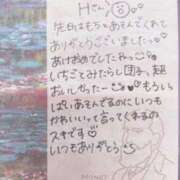 Hさん
先日はもちとあそんでくれて
ありがとうございましたっ♡
あけおめでしたね
いちごとみたらし団子、超
おいしやったー♡もういし
ぱいあそんでるのにいつも
かわいいって言ってくれるの
スキです♡
いつもありがとう
MONET